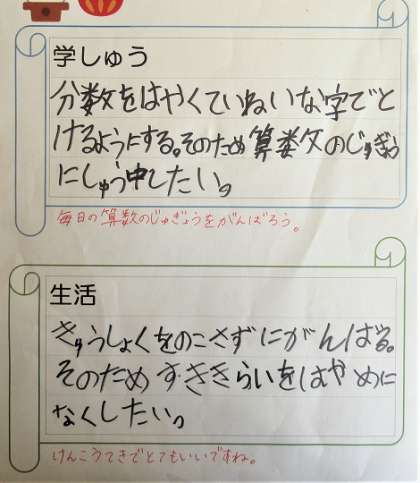 学しゅう
分数をはやくていねいな字でと
けるようにする。そのため算数のじゅぎょう
にしゅう中したい。
毎日の算数のじゅぎょうをがんばろう。
生活
きゅうしょくをのこさずにがんばる。
そのためすききらいをはやめに
なくしたい。
けんこうてきでとてもいいですね。